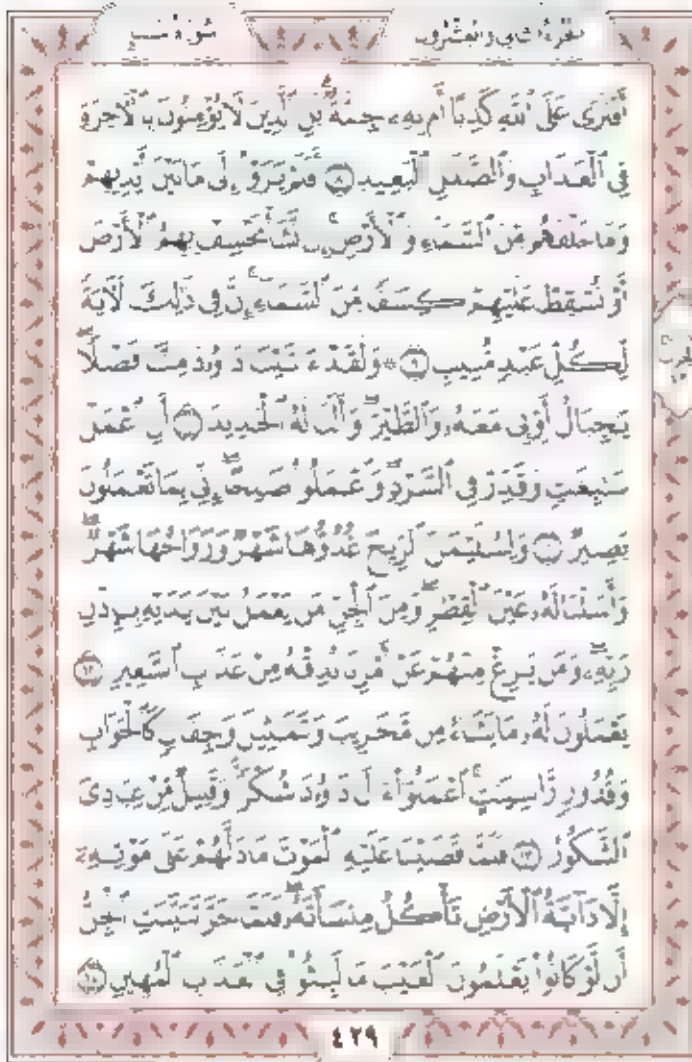 الجزء الثاني والعشرون
سورة سبإ
أَفْتَرَىٰ عَلَى ٱللَّهِ كَذِبًا أَم بِهِۦ جِنَّةٌۢ ۗ بَلِ ٱلَّذِينَ لَا يُؤْمِنُونَ بِٱلْءَاخِرَةِ
فِي ٱلْعَذَابِ وَٱلضَّلَٰلِ ٱلْبَعِيدِ ٨ أَفَلَمْ يَرَوْا۟ إِلَىٰ مَا بَيْنَ أَيْدِيهِمْ
وَمَا خَلْفَهُم مِّنَ ٱلسَّمَآءِ وَٱلْأَرْضِ ۚ إِن نَّشَأْ نَخْسِفْ بِهِمُ ٱلْأَرْضَ
أَوْ نُسْقِطْ عَلَيْهِمْ كِسَفًا مِّنَ ٱلسَّمَآءِ ۚ إِنَّ فِي ذَٰلِكَ لَءَايَةً
لِّكُلِّ عَبْدٍ مُّنِيبٍ ٩ ۞ وَلَقَدْ ءَاتَيْنَا دَاوُۥدَ مِنَّا فَضْلًا ۖ
يَٰجِبَالُ أَوِّبِي مَعَهُۥ وَٱلطَّيْرَ ۖ وَأَلَنَّا لَهُ ٱلْحَدِيدَ ١٠ أَنِ ٱعْمَلْ
سَٰبِغَٰتٍ وَقَدِّرْ فِي ٱلسَّرْدِ ۖ وَٱعْمَلُوا۟ صَٰلِحًا ۖ إِنِّي بِمَا تَعْمَلُونَ
بَصِيرٌ ١١ وَلِسُلَيْمَٰنَ ٱلرِّيحَ غُدُوُّهَا شَهْرٌ وَرَوَاحُهَا شَهْرٌ ۖ
وَأَسَلْنَا لَهُۥ عَيْنَ ٱلْقِطْرِ ۖ وَمِنَ ٱلْجِنِّ مَن يَعْمَلُ بَيْنَ يَدَيْهِ بِإِذْنِ
رَبِّهِۦ ۖ وَمَن يَزِغْ مِنْهُمْ عَنْ أَمْرِنَا نُذِقْهُ مِنْ عَذَابِ ٱلسَّعِيرِ ١٢
يَعْمَلُونَ لَهُۥ مَا يَشَآءُ مِن مَّحَٰرِيبَ وَتَمَٰثِيلَ وَجِفَانٍ كَٱلْجَوَابِ
وَقُدُورٍ رَّاسِيَٰتٍ ۚ ٱعْمَلُوٓا۟ ءَالَ دَاوُۥدَ شُكْرًا ۚ وَقَلِيلٌ مِّنْ عِبَادِيَ
ٱلشَّكُورُ ١٣ فَلَمَّا قَضَيْنَا عَلَيْهِ ٱلْمَوْتَ مَا دَلَّهُمْ عَلَىٰ مَوْتِهِۦٓ
إِلَّا دَآبَّةُ ٱلْأَرْضِ تَأْكُلُ مِنسَأَتَهُۥ ۖ فَلَمَّا خَرَّ تَبَيَّنَتِ ٱلْجِنُّ
أَن لَّوْ كَانُوا۟ يَعْلَمُونَ ٱلْغَيْبَ مَا لَبِثُوا۟ فِي ٱلْعَذَابِ ٱلْمُهِينِ ١٤
٤٢٩